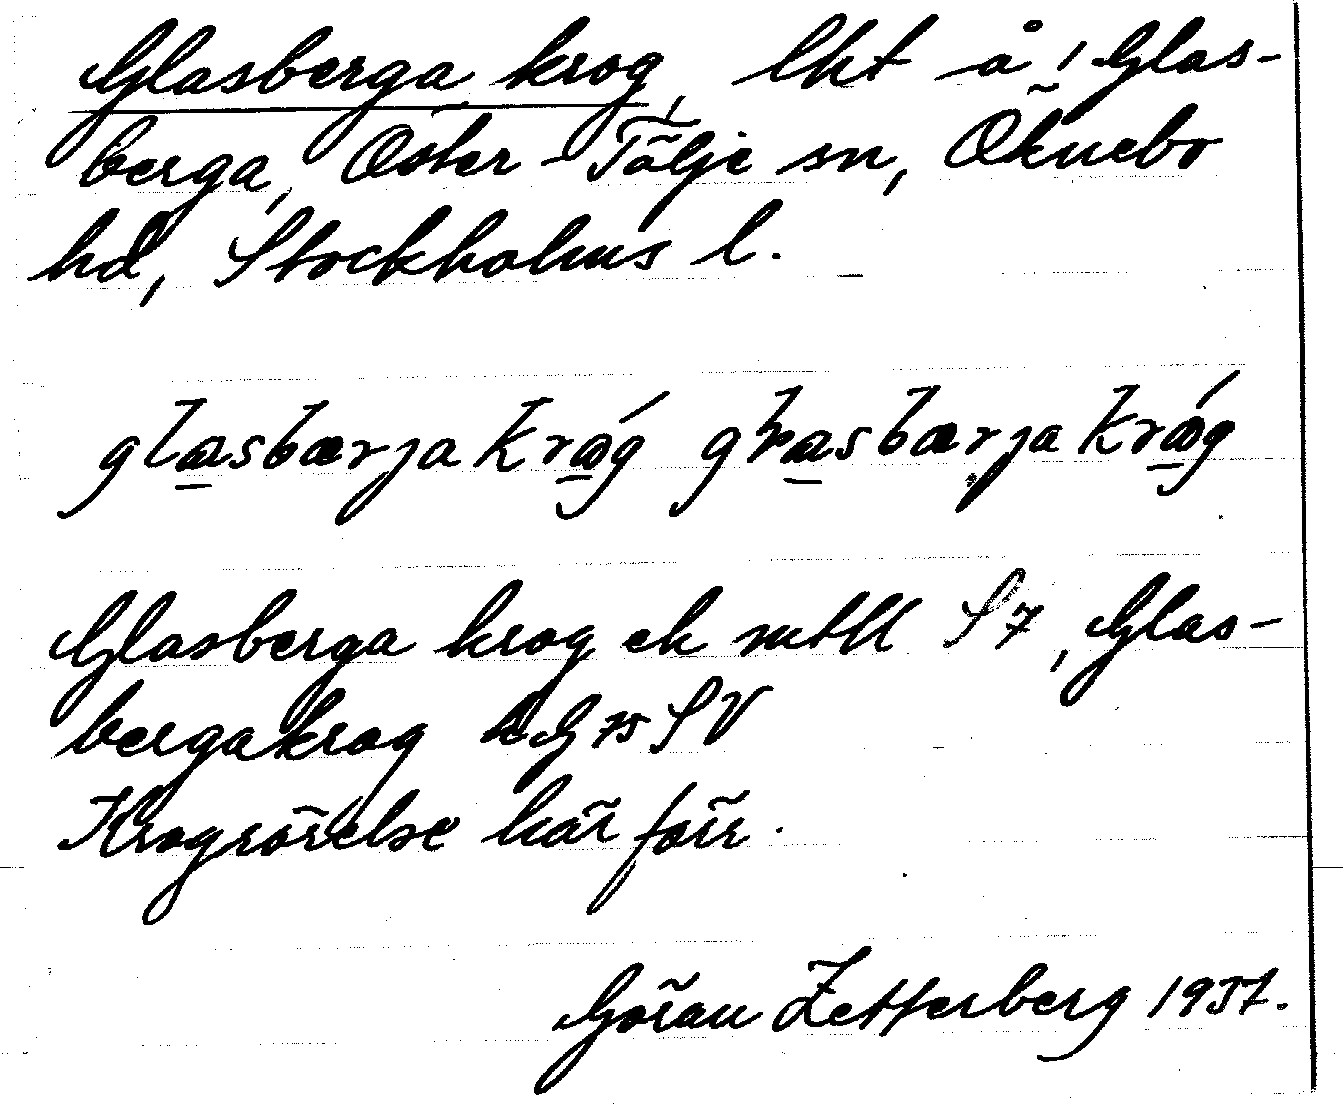 Glasberga krog, lht å! Glas-
berga, Öster-Tälje sn, Öknebo
hd, Stockholms l.
glasbærja króg gɽasbærja króg
Glasberga krog ek mtll S7, Glas-
bergakrog hG 75 SV
Krogrörelse här förr.
Göran Zetterberg 1937.